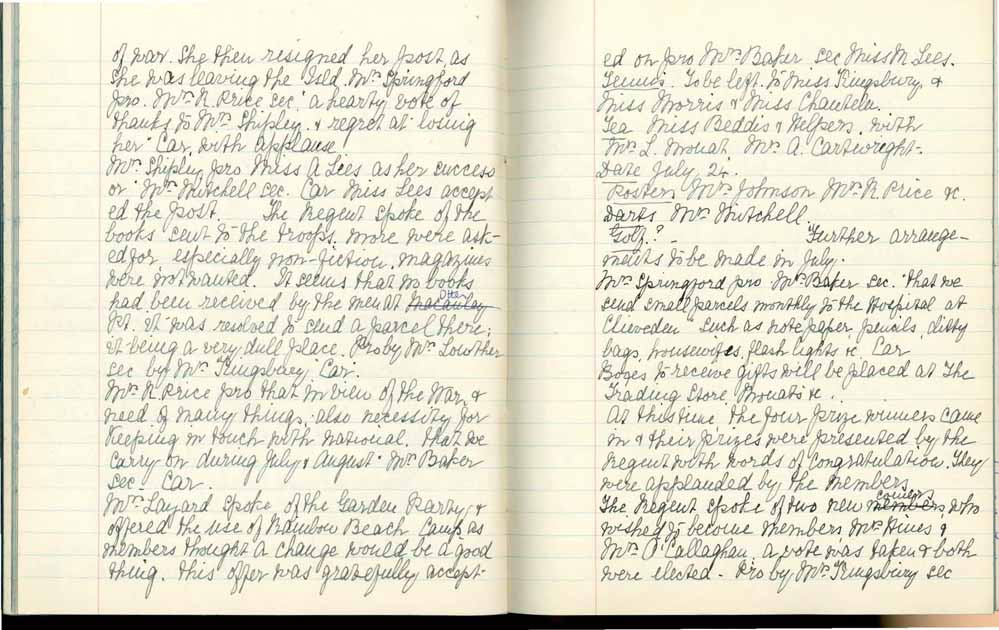 of war. She then resigned her post as
she was leaving the Isld. Mrs Springford
pro. Mrs R. Price sec. "a hearty vote of
thanks to Mrs Shipley, & regret at losing
her" Car. with applause
Mrs Shipley pro Miss A Lees as her success
or Mrs Mitchell sec. Car Miss Lees accept
ed the post. The Regent spoke of the
books sent to the troops. More were ask-
ed for especially non-fiction. magazines
were not wanted. It seems that no books
had been received by the men at Macaulay Otter
Pt. it was resolved to send a parcel there;
it being a very dull place. Pro by Mrs Lowther
sec by Mrs Kingsbury. Car.
Mrs R Price pro that in view of the War, &
need of many things, also necessity for
keeping in touch with National. that we
carry on during July & August. Mrs Baker
sec. Car.
Mrs Layard spoke of the Garden Party, &
offered the use of Rainbow Beach Camp as
members thought a change would be a good
thing. this offer was gratefully accept-
ed on pro Mrs Baker. sec Miss M. Lees.
Tennis. To be left to Miss Kingsbury &
Miss Morris & Miss Chantelu.
Tea Miss Beddis & Helpers. with
Mrs L. Mouat Mrs A. Cartwright-
Date July 24.
Posters Mrs Johnson Mrs R Price &c.
Darts Mrs Mitchell.
Golf? - Further arrange-
ments to be made in July.
Mrs Springford pro Mrs Baker sec. "that we
send small parcels monthly to the Hospital at
Cliveden" such as note paper, pencils, ditty
bags, housewifes, flash lights &c. Car
Boxes to receive gifts will be placed at The
Trading Store, Mouats &c.
At this time the four prize winners came
in & their prizes were presented by the
Regent with words of congratulation. They
were applauded by the members.
The Regent spoke of two new members comers who
wished to become members Mrs Hines &
Mrs O'Callaghan. a vote was taken & both
were elected - Pro by Mrs Kingsbury sec